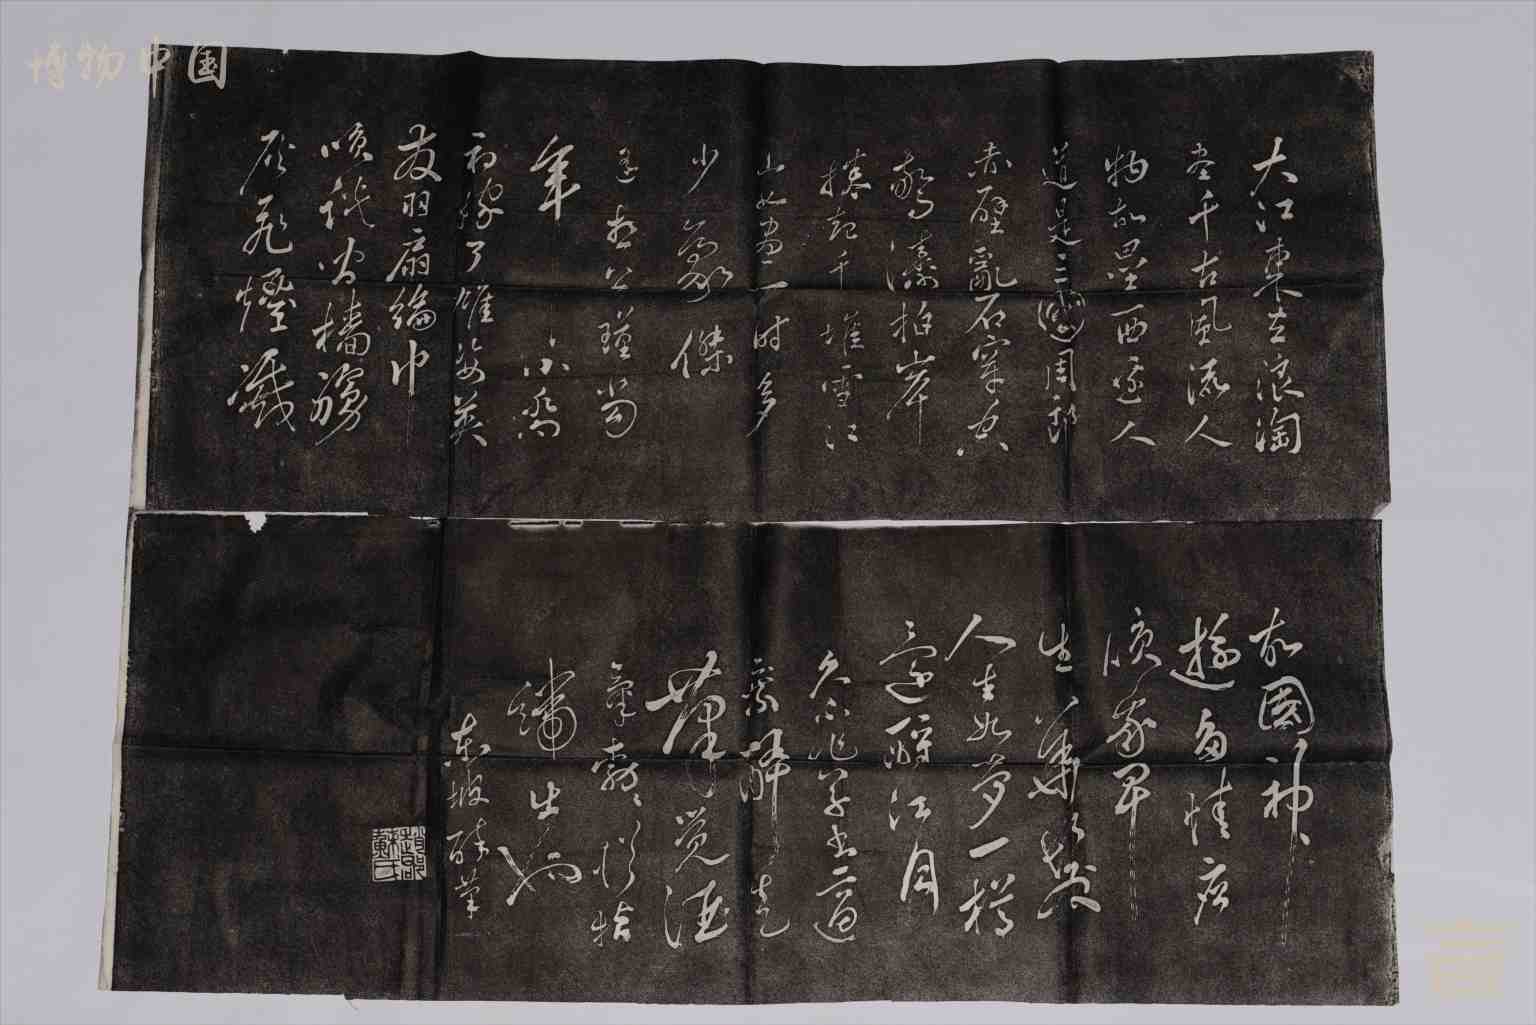 博物中国
大江東去浪淘
盡千古風流人
物故壘西邊人
道是三國周郎
赤壁亂石穿空
驚濤拍岸
捲起千堆雪江
山如畫一時多
少豪傑
遙想公瑾當
年小喬
初嫁了雄姿英
發羽扇綸巾
談笑間檣艣
灰飛煙滅
故國神
遊多情應
笑我早
生華髮
人生如夢一樽
還酹江月
久不作草書適
乘醉走
筆覺酒
氣勃勃從指
端出也
東坡醉筆
趙郡蘇氏